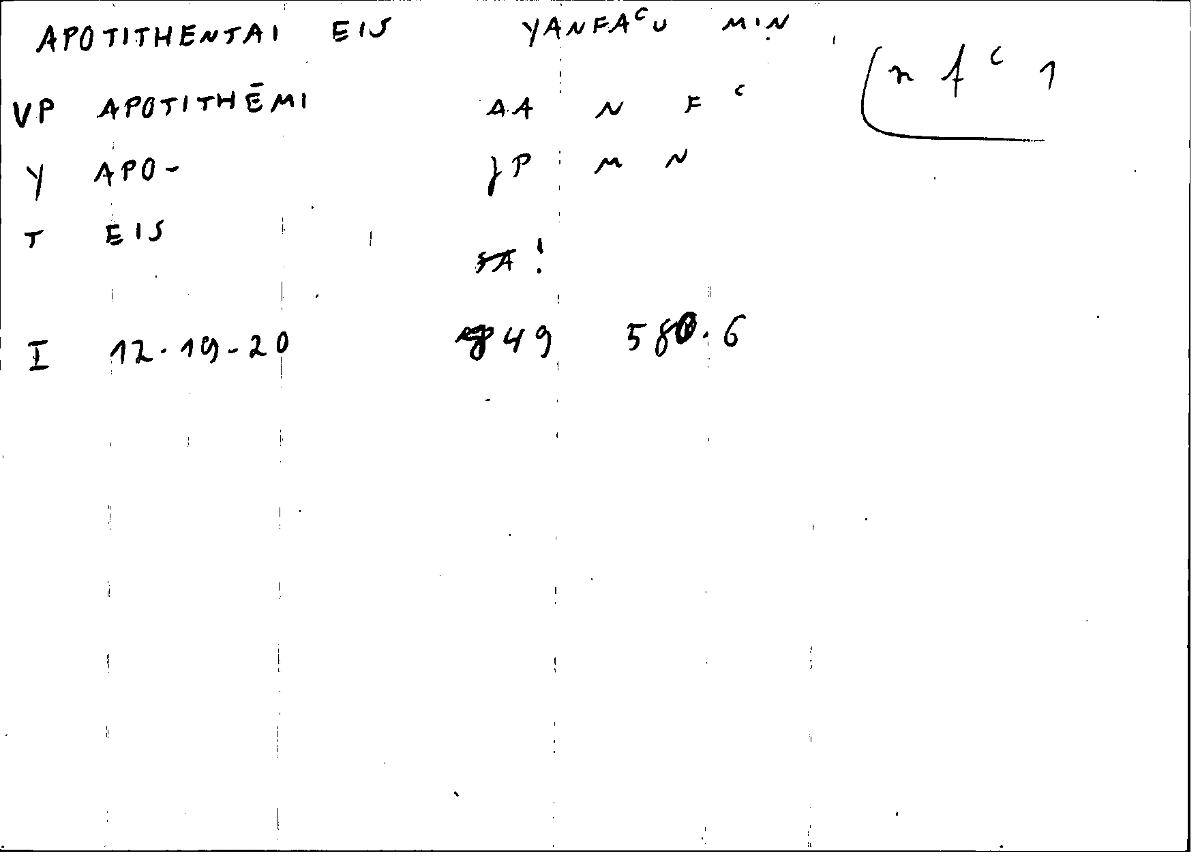 APOTITHENTAI EIS YANFAᶜU MIN
VP APOTITHĒMI AA N F ᶜ
(n f ᶜ 1
Y APO- JP M N
T EIS
A !
I 12.19-20 49 580.6